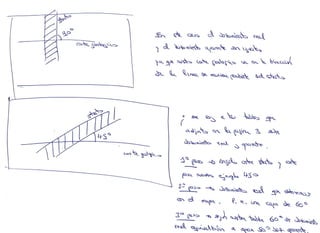 estrato
90°
corte geológico
En este caso el buzamiento real
y el buzamiento aparente son iguales
ya que nuestro corte geológico va en la dirección
de la línea de máxima pendiente del estrato
estrato
45°
corte geológico
tablas que
adjunto en la página 3 sobre
buzamiento real y aparente.
1º paso → ángulo entre estrato y corte
para nuestro ejemplo 45º
2º paso → buzamiento real que obtenemos
en el mapa. P. e. una capa de 60º
3er paso → según nuestra tabla 60º de buzamiento
real equivaldrían a unos 50º de aparente.